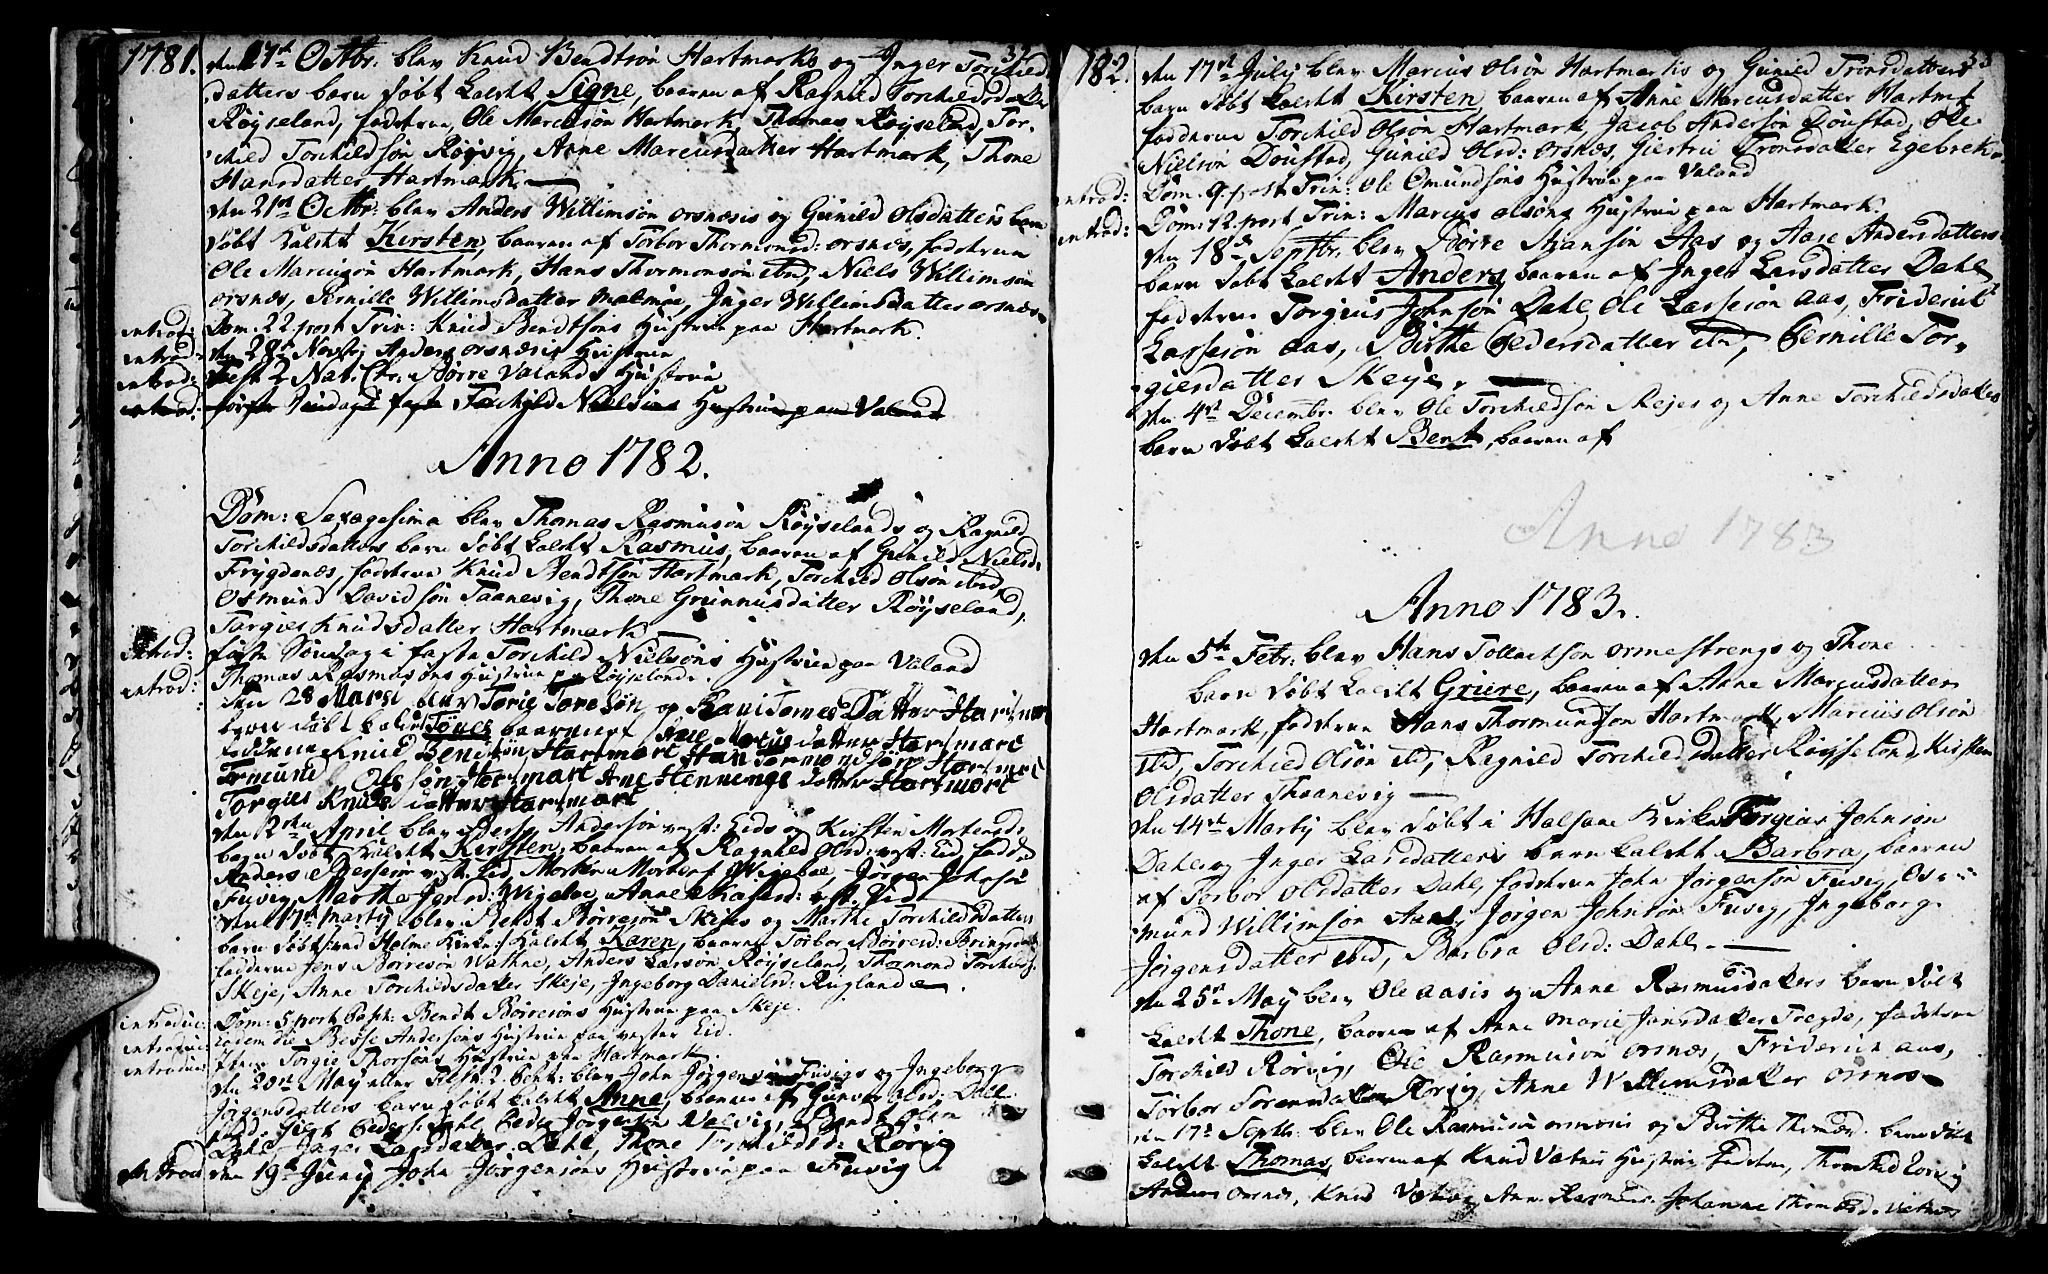 1781. den 17de Octbr. blev Knud Bendtsøn Hartmarks og Inger Torchilds
datters barn døbt kaldet Signe, baaren af Ragnild Torchildsdatter
Røyseland, fadderne, Ole Marcusøn Hartmark, Thomas Røyseland, Tor-
child Torchildsøn Røyvig, Anne Marcusdatter Hartmark, Thone
Hansdatter Hartmark.
den 21de Octbr: blev Anders Willimsøn orsnæsis og Gunild olsdatters barn
døbt kaldet Kirsten, baaren af Torbor Thormonsd: orsnæs, fadderne
Ole Marcusøn Hartmark, Hans Thormonsøn ibid, Niels Willimsøn
orsnæs, Pernille Willimsdatter malmøe, Inger Willimsdatter orsnæs
introd: Dom. 22 post Trin: Knud Bendtsøns Hustrue paa Hartmark.
introd: den 28de Novbr Anders orsnæsis Hustrue
introd: Fest 2 Nat. Chr. Børre Valands Hustrue
introd: første Søndag i faste Torchild Nielsøns Hustrue paa Valand
Anno 1782.
Dom: Sexagesima blev Thomas Rasmusøn Røyselands og Ragnild
Torchildsdatters barn døbt kaldet Rasmus, baaren af Gunild Nielsd:
Frygdenæs, fadderne Knud Bendtsøn Hartmark, Torchild Olsøn ibid,
Osmund Davidsøn Taanevig, Thone Grunnundatter Røyseland,
Targies Knudsdatter Hartmark
introd: første Søndag i faste Torchild Nielsøns Hustrue paa Valand
introd: Thomas Rasmusøns Hustrue paa Røyseland.
den 28 Marsi blev Torie Toresøn og Rani Tomes Datter Harsmar
barn døbt kaldet Tønes baaren af Ane Marcus datter Harsmarc
fadderne Knud Bendtsøn Harsmarc Han Tormondsøn Harsmarc
Tormund Olsøn Harsmarc Ane Hennings datter Harsmarc
Torgies Knuds datter Harsmarc
den 2den April blev Besse Andersøn vest: Eids og Kirsten Mortensd:
barn døbt kaldet Kirsten, baaren af Ragnild Olsd: vest: Eid, fadd:
Anders Bessesøn vest: Eid, Morten Mortens: Wigeboe, Jørgen Johnsøn
Fuvig, Marthe Jensd: Wigeboe, Anne vest: Eid
den 17de Martij blev Bendt Børresøn Skejes og Marthe Torchildsdatters
barn døbt ved Holme Kirke kaldet Karen, baaren Torbor Børresd: Bringsdal
fadderne Jens Børresøn Vathne, Anders Larsøn Røyseland, Thormond Torchilds:
Skeje, Anne Torchildsdatter Skeje, Ingeborg Danielsd: Rugland
introduc: Dom: 5 post Epiph: Bendt Børresøns Hustrue paa Skeje.
introduc: eodem die Besse Andersøns Hustrue paa vester Eid.
introduc: Torgie Thorsøns Hustrue paa Hartmark.
den 20de May eller Fest: 2. Pent: blev John Jørgensøns Fuvigs og Ingeborg
Jørgensdatters barn døbt kaldet Anne, baaren af Gunvor olsd: Dahl
fadd: Giert Peders: Dahl, Peder Jørgensøn Valvig, Bendt Olsen
Dahl, Inger Larsdatter Dahl, Thone Torchildsd: Rørvig
introd den 19de Junij John Jørgensøns Hustrue paa Fuvig
1782. den 17de July blev Marcus Olsøn Hartmarks og Gunild Tronsdatters
barn døbt kaldet Kirsten, baaren af Anne Marcusdatter Hartmark
fadderne Torchild Olsøn Hartmark, Jacob Andersøn Døustad, Ole
Nielsøn Døustad, Gunild Olsd: orsnæs, Giertru Tronsdatter Egebrek
introd: Dom. 9. post Trin: Ole Omundsøns Hustrue paa Valand
introd: Dom: 12. post Trin: Marcus olsøns Hustrue paa Hartmark.
den 18de Septbr. blev Børre Stiansøn Aas og Aase Andersdatters
barn døbt kaldet Anders, baaren af Inger Larsdatter Dahl
fadderne Torgius Johnsøn Dahl, Ole Larsesøn aas, Friderich
Larsesøn aas, Birthe Pedersdatter ibd, Pernille Tor-
giersdatter Skeye.
den 4de Decembr. blev Ole Torchildsøn Skejes og Anne Torchildsdatters
barn døbt kaldet Bent, baaren af
Anno 1783
Anno 1783.
den 5te Febr: blev Hans Tollachsøn ormestrengs og Thone
barn døbt kaldet Griere, baaren af Anne Marcusdatter
Hartmark, fadderne Hans Thormundsøn Hartmark, Marcus Olsøn
ibd, Torchild Olsøn ibd, Ragnild Torchildsdatter Røysseland, Kirsten
Olsdatter Thaanevig
den 14de Martij blev døbt i Halsaae Kirke Torgius Johnsøn
Dahls og Inger Larsdatters barn kaldet Barbra, baaren
af Torbor Olsdatter Dahl, fadderne John Jørgensøn Fuvig, Os-
mund Willimsøn Aas, Jørgen Johnsøn Fuvig, Ingeborg
Jørgensdatter ibid, Barbra Olsd: Dahl.
den 25de May blev Ole aasis og Anne Rasmusdatters barn døbt
kaldet Thone, baaren af Anne Marie Jansdatter Tregde, fadderne
Torchild Rørvig, Ole Rasmusøn orsnæs, Friderich aas,
Torbor Sorensdatter Rørvig, Anne Willimsdatter orsnæs
den 17de Septb: blev Ole Rasmusøn ormsnis og Birthe Thomæd. barn døbt
kaldet Thomas, baaren af Knud Vatnes Hustrue, fadderne, Thorchild Rørvig
Anders orsnes, Knud Vatne, Ane Rasmus: Johanne Thomasd. Vatnes